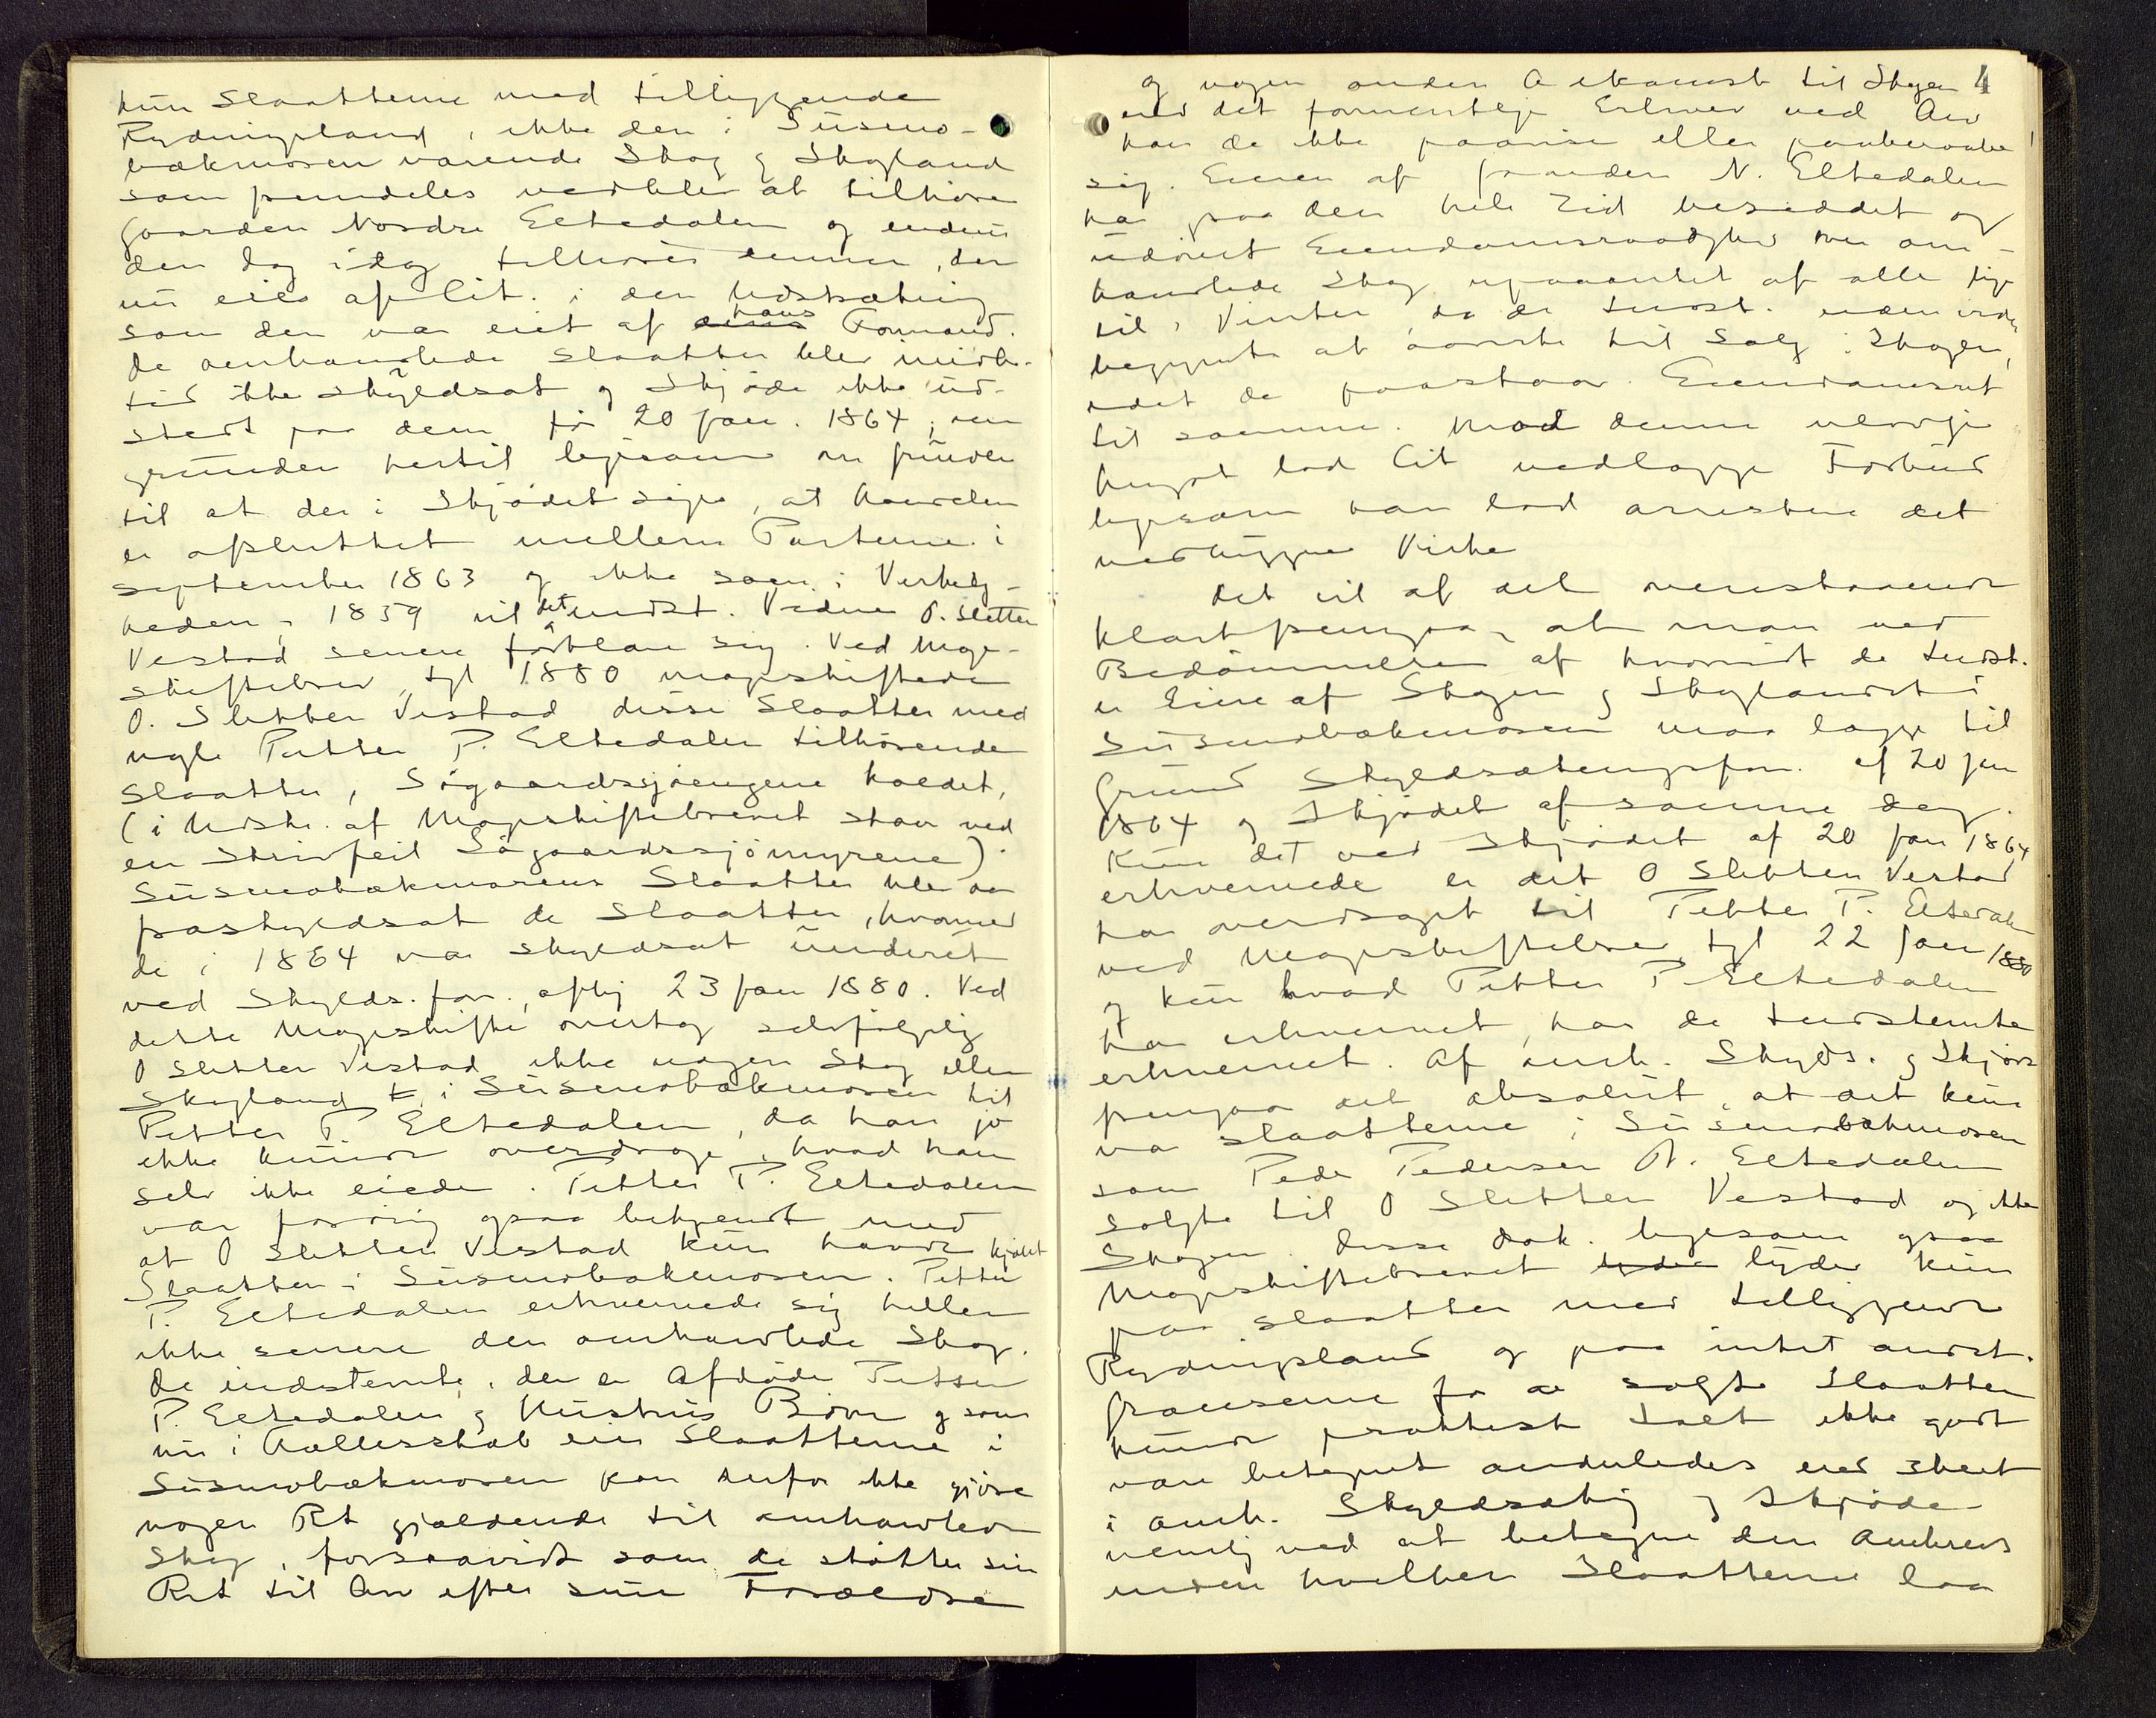 kun Slaatterne med tilliggende
Rydningsland, ikke den i Susmo-
bækmosen værende Skog og Skogland
som fremdeles vedblev at tilhøre
Gaarden Nordre Eltedalen og endnu
den Dag idag tilhører denne, der
nu eies af Cit. i den Udstrækning
som den var eiet af hans Formand.
De omhandlede Slaatter blev imidler-
tid ikke skyldsat og Skjøde ikke ud-
stedt paa dem før 20 Jan. 1864;
grunden hertil ligesom grunden
til at der i Skjødet siges, at Handelen
er afsluttet mellem Parterne i
September 1863 og ikke som i Virkelig-
heden i 1859 vil det indst. Vidne O. Sletten
Vestad senere forklare sig. Ved Mage-
skiftebrev, tgl 1880 mageskiftede
O. Sletten Vestad disse Slaatter med
nogle Petter P. Eltedalen tilhørende
Slaatter, Søgaardssjøengene kaldet,
(i Udskr. af Mageskiftebrevet staar ved
en Skrivfeil Søgaardssjømyrene).
Susmobækmosens Slaatter blev da
fraskyldsat de Slaatter, hvormed
de i 1864 var skyldsat under et
ved Skylds.forr., afhj 23 Jan 1880. Ved
dette Mageskifte overtog selvfølgelig
O Sletten Vestad ikke nogen Skog eller
Skogland i Susmobækmosen til
Petter P. Eltedalen, da han jo
ikke kunde overdrage, hvad han
selv ikke eiede. Petter P. Eltedalen
var forøvrig ogsaa bekjendt med
at O Sletten Vestad kun havde kjøbt
Slaatten i Susmobækmosen. Petter
P. Eltedalen erhvervede sig heller
ikke senere den omhandlede Skog.
De indstevnte, der er Afdøde Petter
P. Eltedalen og Hustrus Børn og som
nu i Fællesskab eier Slaatterne i
Susmobækmosen kan derfor ikke gjøre
nogen Ret gjældende til omhandlede
Skog, forsaavidt som de støtter sin
Ret til Arv efter sine Forældre
4
og nogen anden Adkomst til Skogen
end det formentlige Erhverv ved Arv
har de ikke paavise eller paaberaabe
sig. Eieren af Gaarden N. Eltedalen
har paa den hele Tid besiddet og
udøvet Eiendomsraadighed over om-
handlede Skog upaaantet af alle lige
til i Vinter, da de indst. uden videre
begyndte at avvirke til Salg i Skogen,
idet de paastaar Eiendomsret
til samme. Mod denne ulovlige
Hugst lod Cit nedlægge Forbud
ligesom han lod arrestere det
nedhuggne Virke
Det vil af det ovenstaaende
klart fremgaa, at man ved
Bedømmelsen af hvorvidt de indst.
er Eiere af Skogen og Skoglandet i
Susmobækmosen maa lægge til
Grund Skyldsætningsforr. af 20 Jan
1864 og Skjødet af samme Dag.
Kun det ved Skjødet af 20 Jan 1864
erhvervede er det O Sletten Vestad
har overdraget til Petter P. Eltedalen
ved Mageskiftebrev tgl 22 Jan 1880
og kun hvad Petter P Eltedalen
har erhvervet, har de indstevnte
erhvervet. Af omh. Skylds. og Skjøde
fremgaar det absolut, at det kun
var Slaatterne i Susmobækmosen
som Peder Pedersen N. Eltedalen
solgte til O Sletten Vestad og ikke
Skogen. Disse dok. ligesom ogsaa
Mageskiftebrevet lyder kun
paa Slaatter med tilliggende
Rydningsland og paa intet andet.
Grænserne for de solgte Slaatter
kunde praktisk talt ikke godt
være betegnet anderledes end skeet
i omh. Skyldsætnig og Skjøde
nemlig ved at betegne den
inden hvilken Slaatterne laa